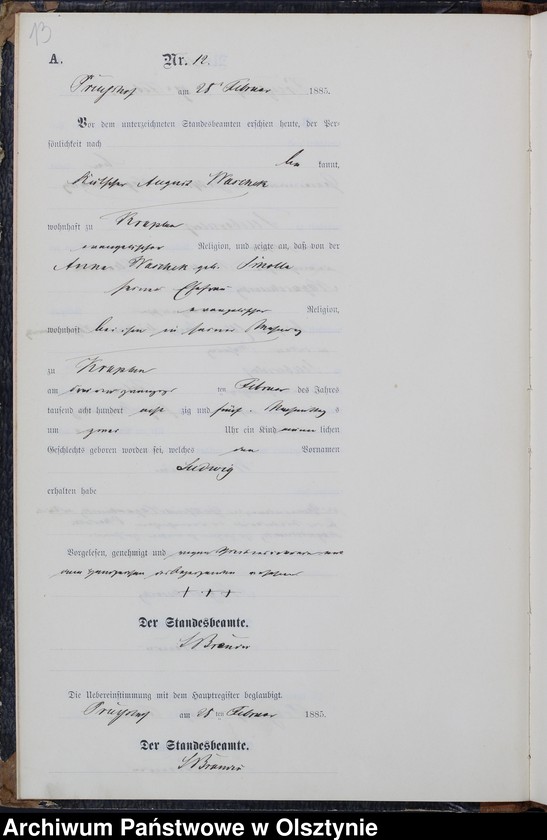 13
A. Nr. 12.
am 28ten Februar 1885.
Vor dem unterzeichneten Standesbeamten erschien heute, der Per-
sönlichkeit nach
be kannt,
Kutscher August Waschek
wohnhaft zu Kraplau
evangelischer Religion, und zeigte an, daß von der
Anna Waschek geb.
seiner Ehefrau
evangelischer Religion,
wohnhaft bei ihm in seiner Wohnung
zu Kraplau
am drei und zwanzigs ten Februar des Jahres
tausend acht hundert acht zig und fünf Nachmittag s
um zwei Uhr ein Kind männ lichen
Geschlechts geboren worden sei, welches den Vornamen
Ludwig
erhalten habe
Vorgelesen, genehmigt und wegen
dem Handzeichen versehen
+ + +
Der Standesbeamte.
Die Uebereinstimmung mit dem Hauptregister beglaubigt.
am 28 ten Februar 1885.
Der Standesbeamte.
Archiwum Państwowe w Olsztynie